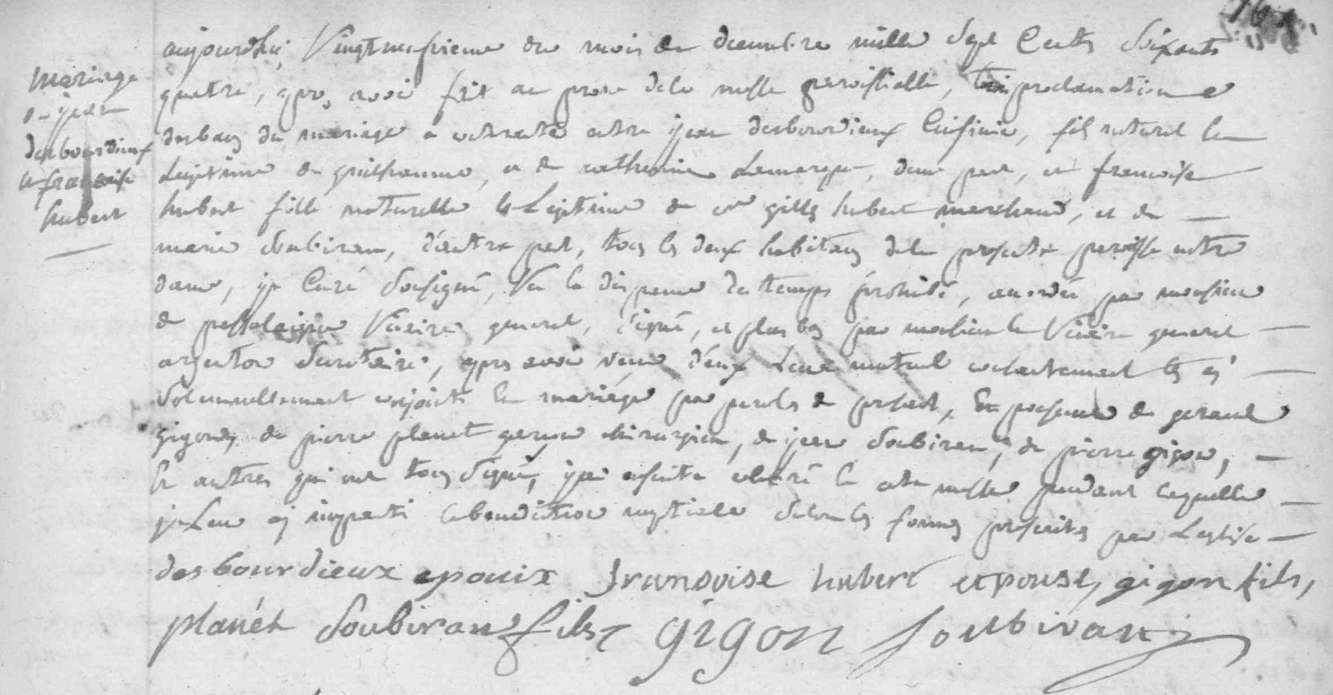 mariage
d. jean
desbourdieux
et francoise
hubert
aujourdhui, Vingt
du mois de decembre mille Sept Cents Soixante
quatre, apres avoir fait au prone dela messe parroissialle, trois proclamations
desbans du mariage a contracter entre jean desbourdieux Cuisinier, fils naturel &
Legitime de guilhaume, et de catherine Lamarque, dune part, et francoise
hubert fille naturelle & Legitime de gilles hubert marchand, et de
marie soubiran, d'autre part, tous les deux habitans dela presente paroisse notre
dame, je Curé Soussigné, Vu la dispense du temps prohibé, accordée par monsieur
de Vicaire general, signé, et plus bas par monsieur le Vicaire general
Secretaire, apres avoir receu d'eux Leur mutuel consentement les ai
Solemnellement conjoints en mariage par parolles de present, En presence de geraud
gigon, de pierre planet garçon chirurgien, de jean Soubiran, de pierre gigon,
& autres qui ont tous Signé, jai ensuite celebré la sainte messe pendant laquelle
je Leur ai imparti la benediction nuptiale Selon les formes prescrites par Leglise
desbourdieux epouix francoise hubert epouse, gigon fils,
planét Soubiran fils gigon Soubiran